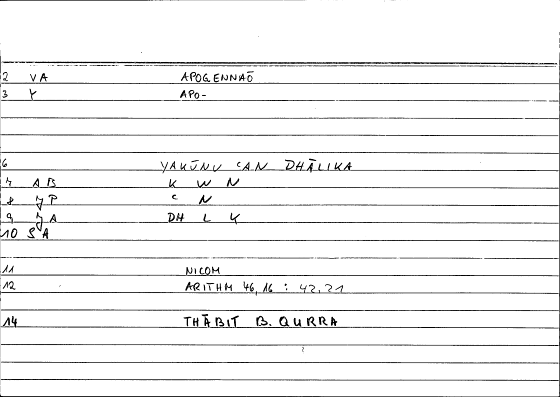 2 VA APOGENNAŌ
3 Y APO-
6 YAKŪNU ʿAN DHĀLIKA
7 AB K W N
8 JP ʿ N
9 JA DH L K
10 SA
11 NICOM
12 ARITHM 46,16 : 42,21
14 THĀBIT B. QURRA